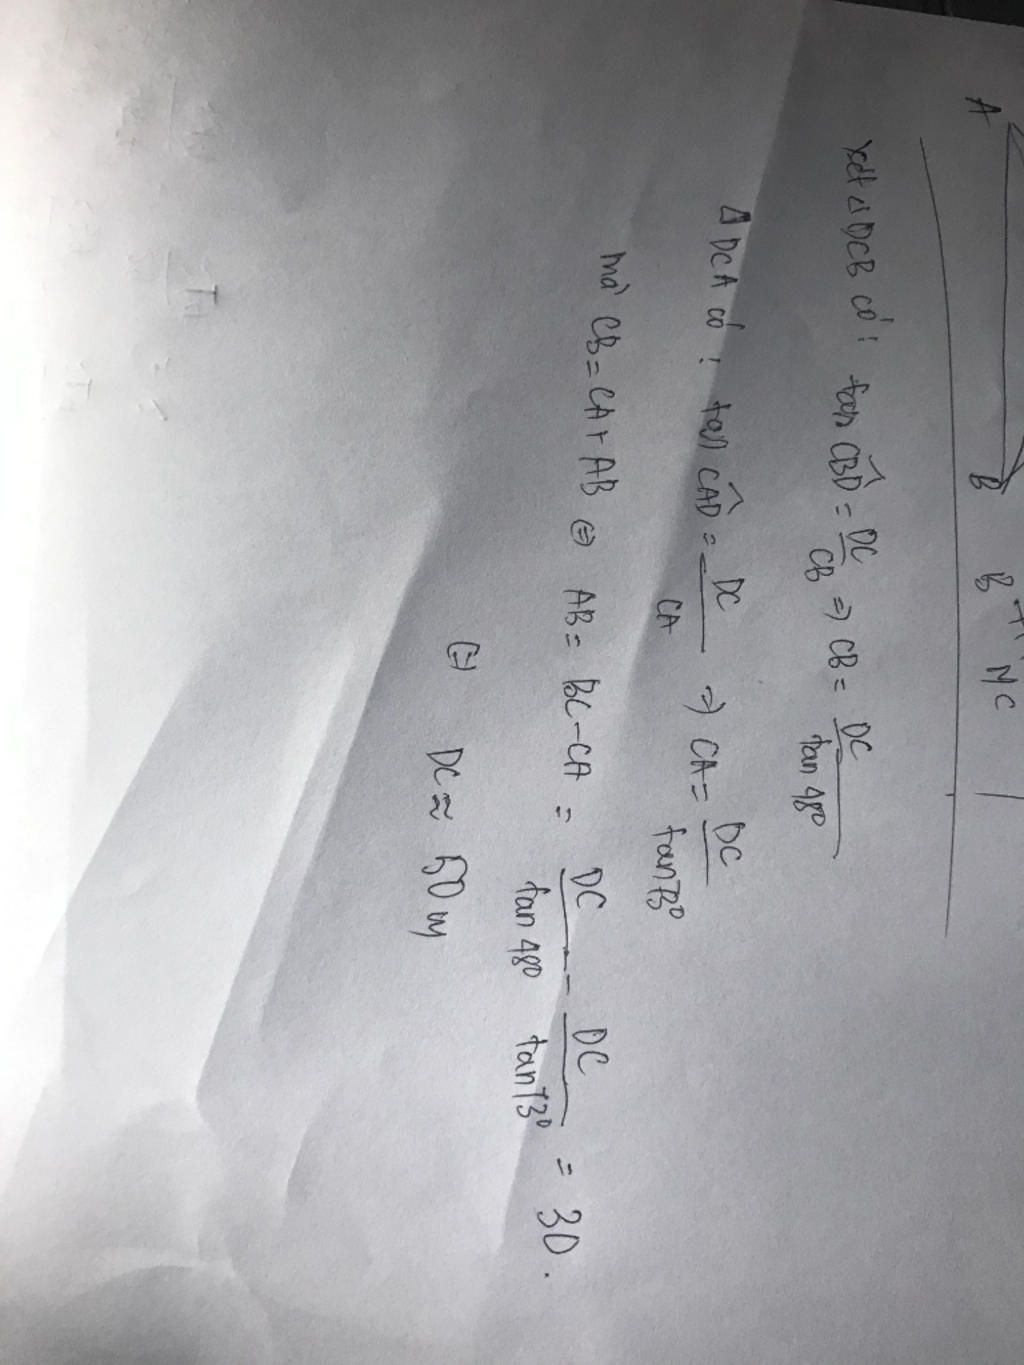 A
B
B
MC
xét △DCB có: tan CBD̂ = DC/CB ⇒ CB = DC/tan 48°
△DCA có: tan CAD̂ = DC/CA ⇒ CA = DC/tan 73°
mà CB = CA + AB ⇔ AB = BC - CA = DC/tan 48° - DC/tan 73° = 30.
⇔ DC ≈ 50 m